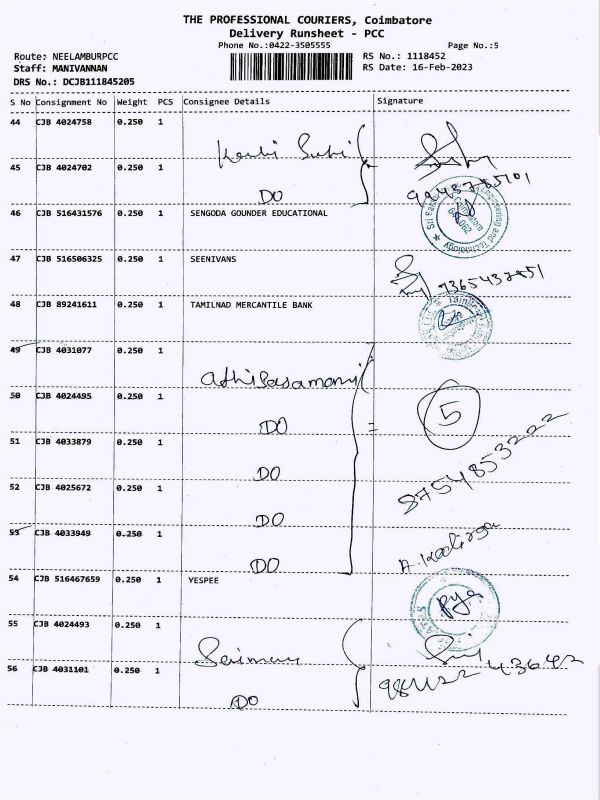 THE PROFESSIONAL COURIERS, Coimbatore
Delivery Runsheet - PCC
Phone No.:0422-3505555 Page No.:5
Route: NEELAMBURPCC RS No.: 1118452
Staff: MANIVANNAN RS Date: 16-Feb-2023
DRS No.: DCJB111845205
S No Consignment No Weight PCS Consignee Details Signature
44 CJB 4024758 0.250 1
45 CJB 4024702 0.250 1 DO
46 CJB 516431576 0.250 1 SENGODA GOUNDER EDUCATIONAL
47 CJB 516506325 0.250 1 SEENIVANS
48 CJB 89241611 0.250 1 TAMILNAD MERCANTILE BANK
49 CJB 4031077 0.250 1
50 CJB 4024495 0.250 1 DO = 5
51 CJB 4033879 0.250 1 DO
8754853222
52 CJB 4025672 0.250 1 DO
53 CJB 4033949 0.250 1 DO
54 CJB 516467659 0.250 1 YESPEE
55 CJB 4024493 0.250 1
56 CJB 4031101 0.250 1 DO